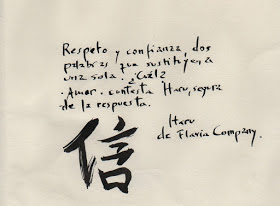 Respeto y confianza, dos
palabras que sustituyen a
una sola. ¿Cuál?
.Amor. contesta Haru, segura
de la respuesta.
Haru
de Flavia Company.
信